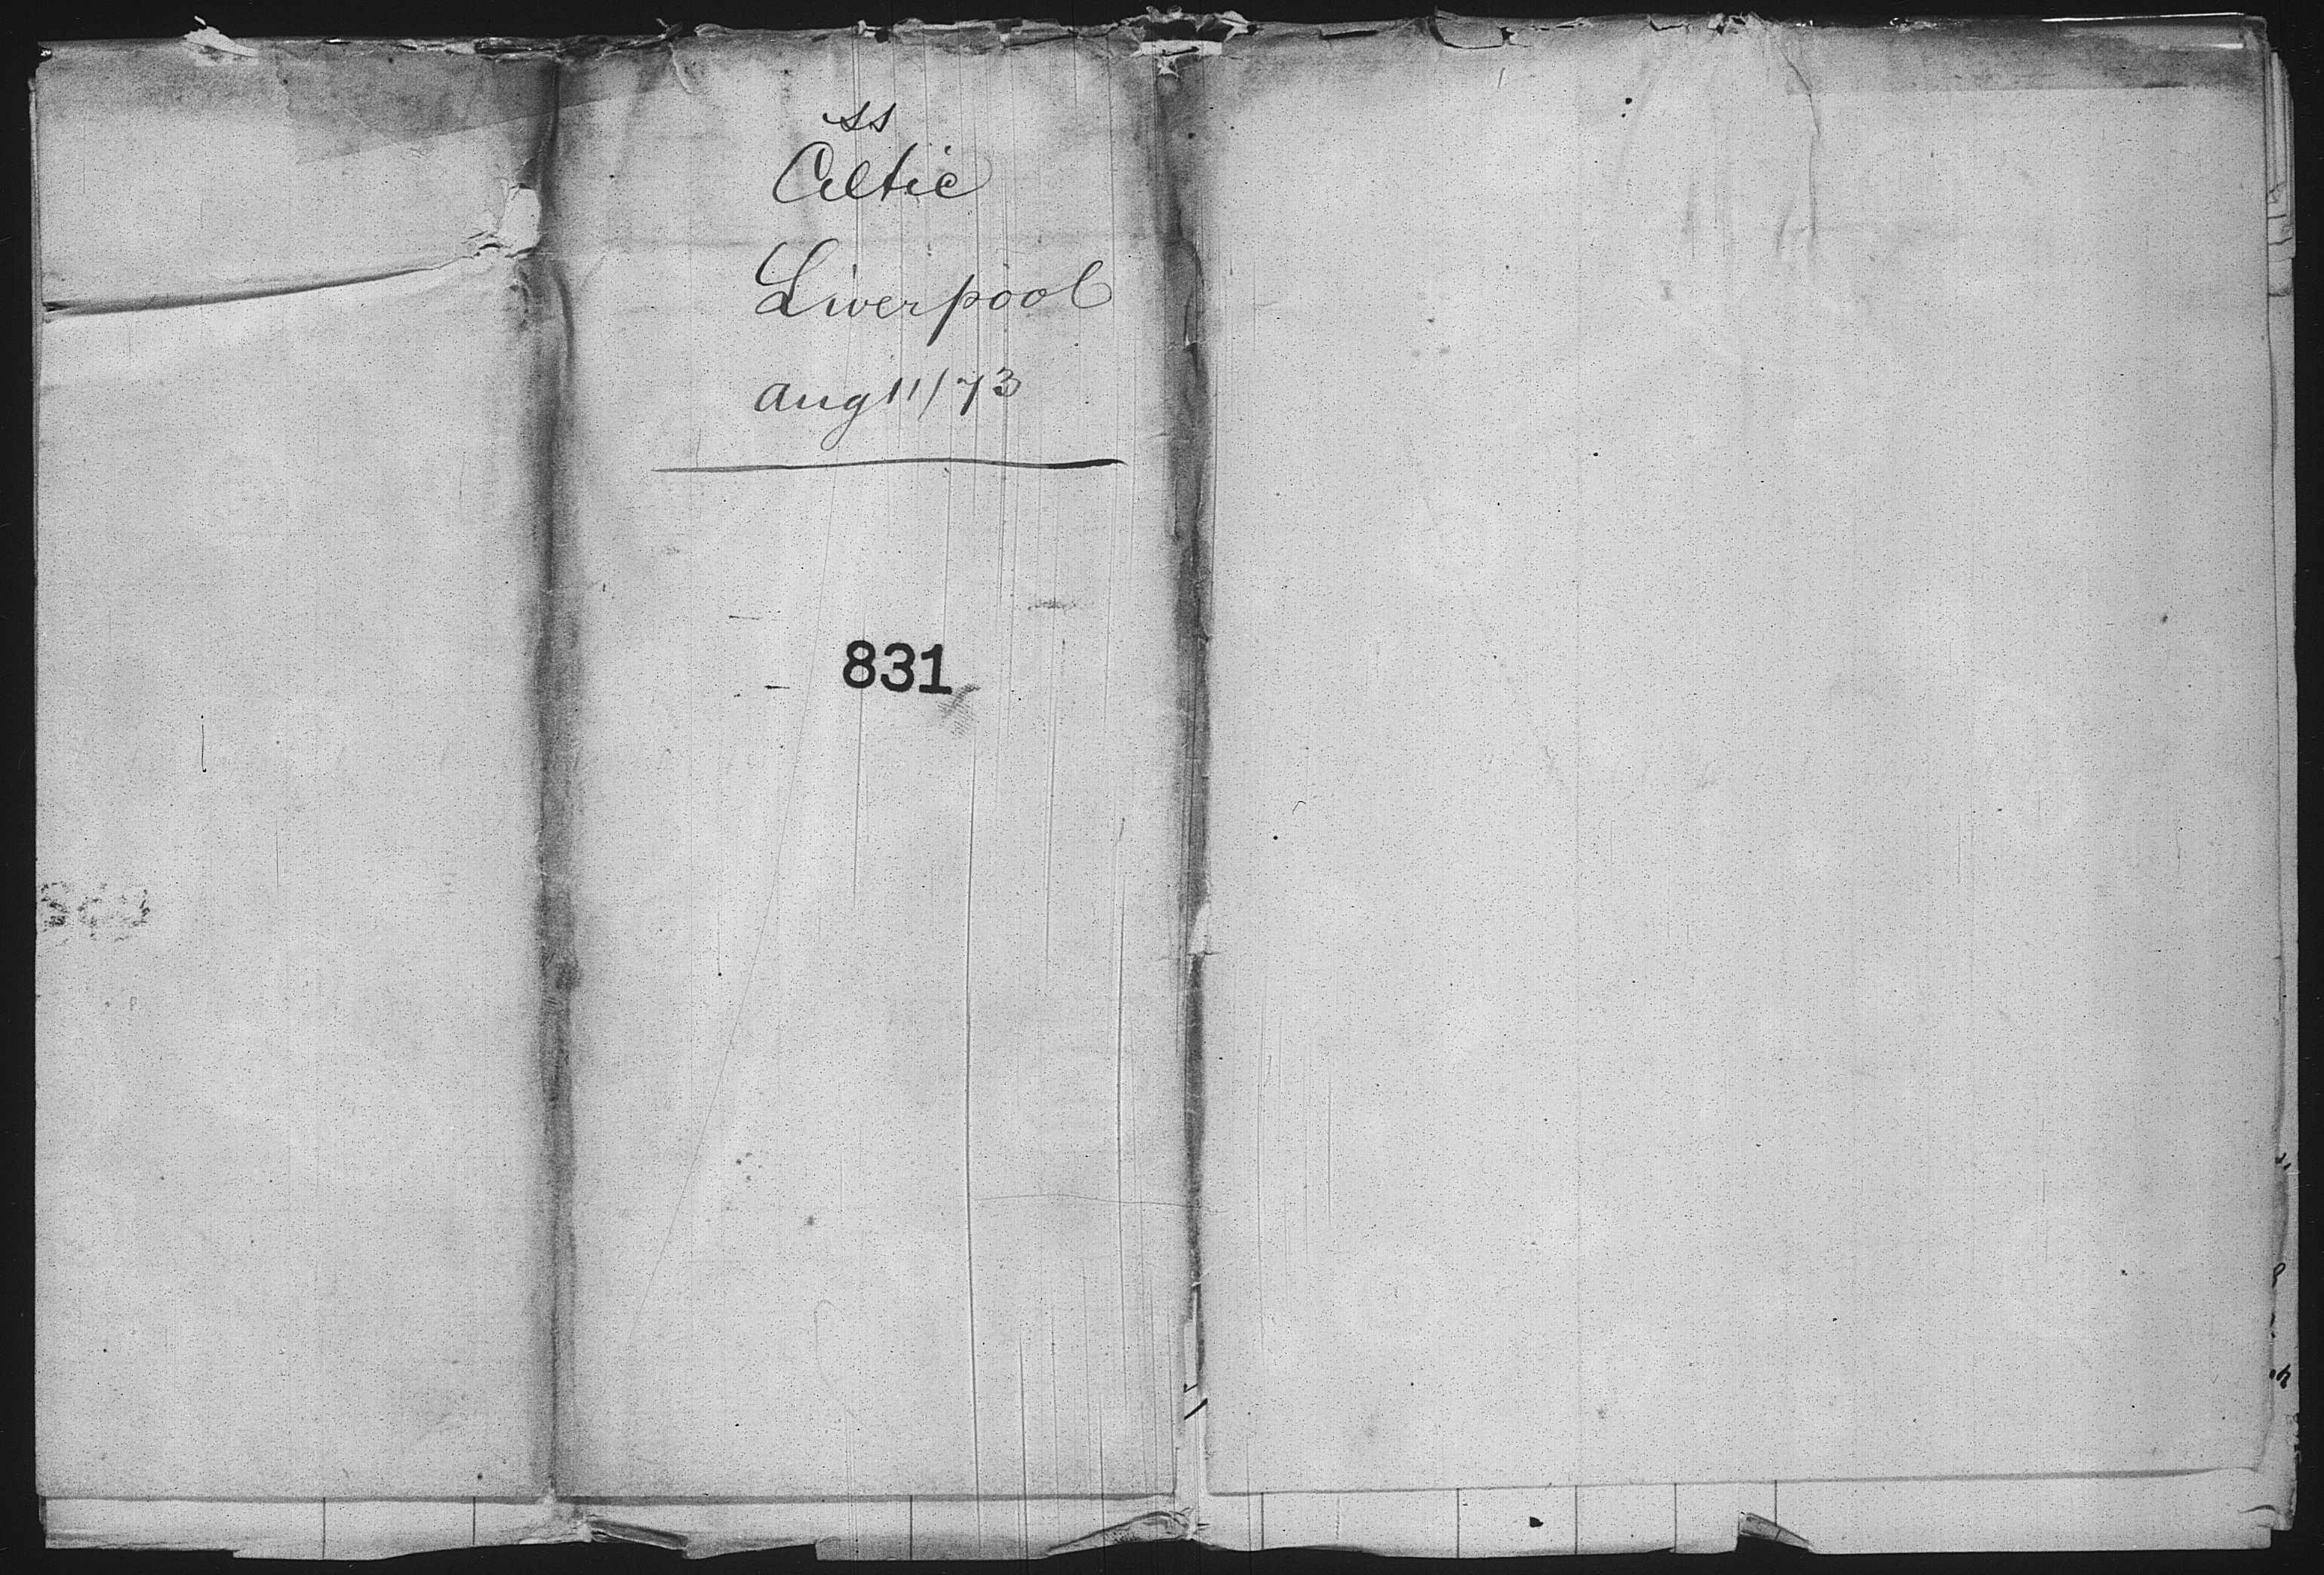 ss
Celtic
Liverpool
Aug 11/73
831